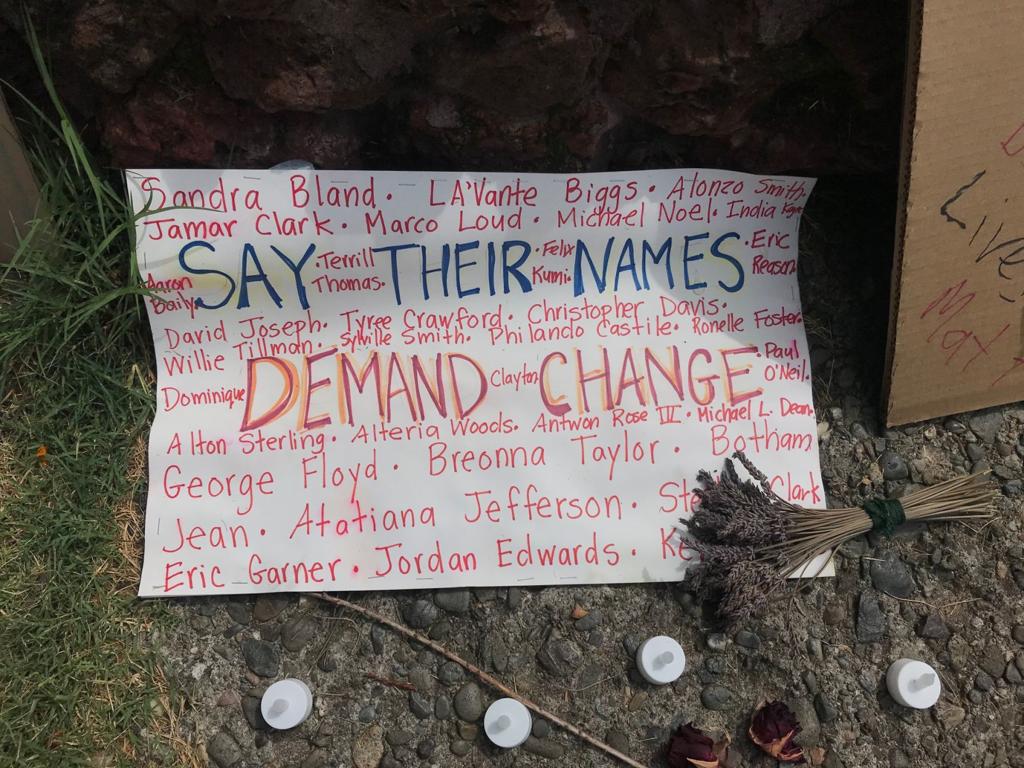 Sandra Bland. LA'Vante Biggs. Alonzo Smith.
Jamar Clark. Marco Loud. Michael Noel. India
SAY THEIR NAMES
Aaron Baily.
Terrill Thomas.
Felix Kumi.
Eric Reason.
David Joseph. Tyree Crawford. Christopher Davis.
Willie Tillman. Sylville Smith. Philando Castile. Ronelle Foster.
DEMAND CHANGE
Dominique Clayton
Paul O'Neil.
Alton Sterling. Alteria Woods. Antwon Rose II. Michael L. Dean.
George Floyd. Breonna Taylor. Botham
Jean. Atatiana Jefferson. Clark
Eric Garner. Jordan Edwards.
Live